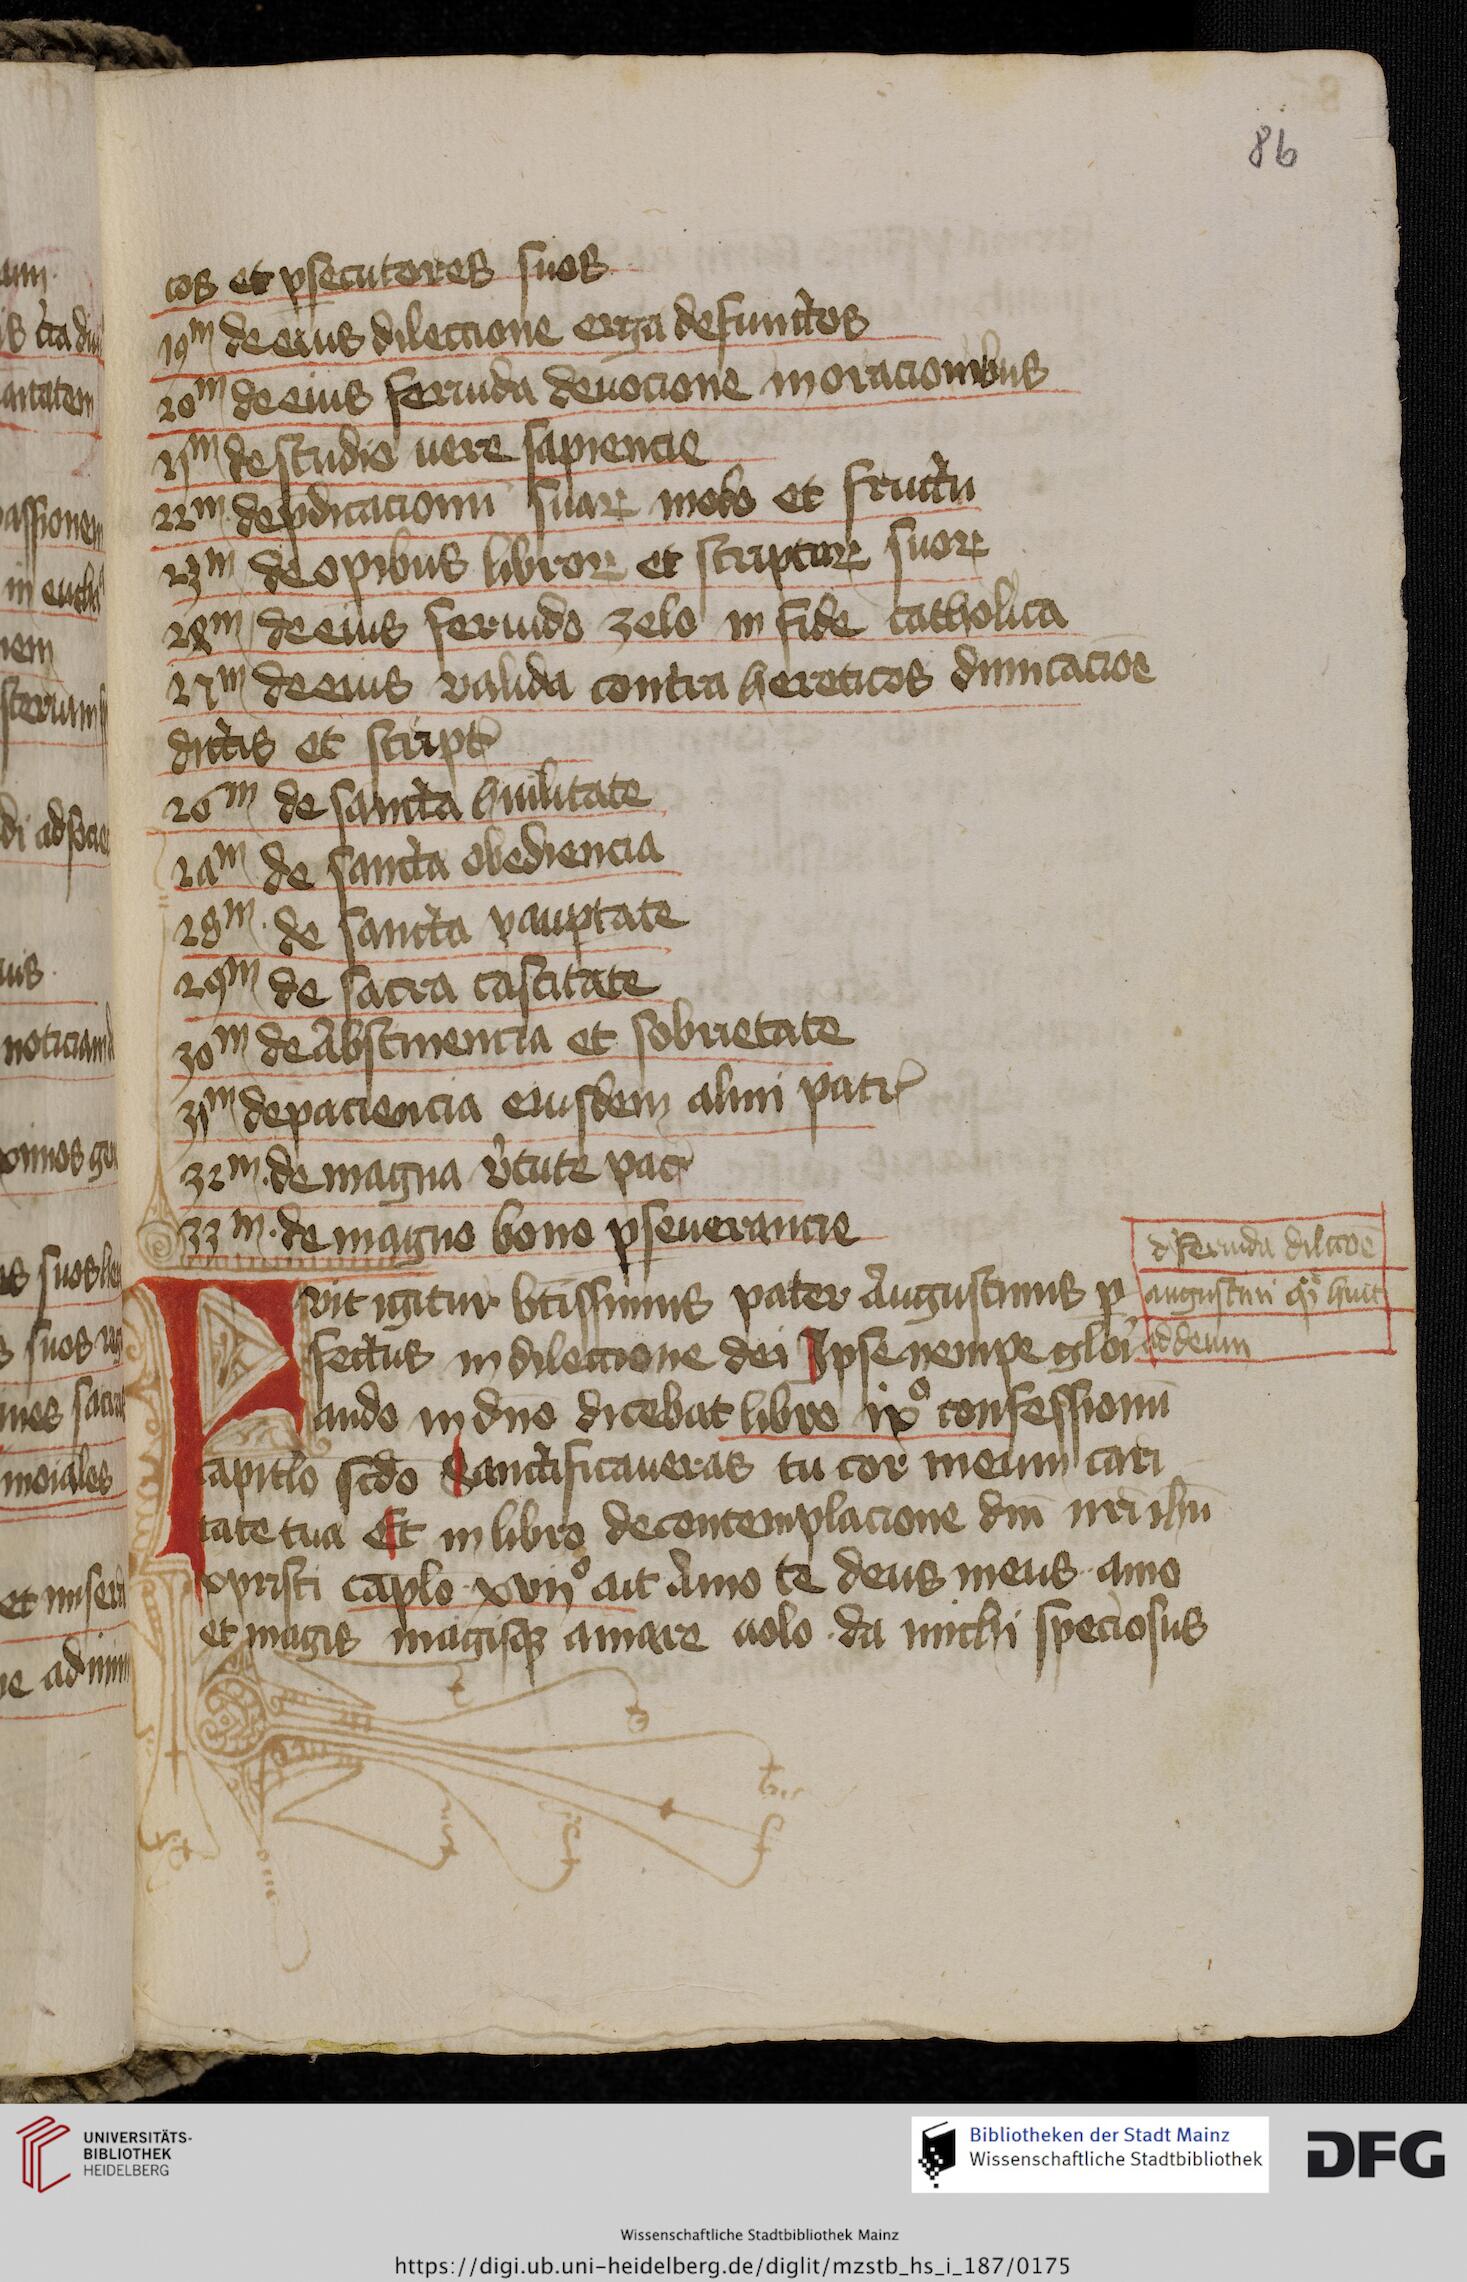 86
cos et ꝑsecutores suos
19m de eius dileccione erga defunctos
20m de eius feruida deuocione in oracionibus
21m de studio vere sapiencie
22m de p̄dicacionū suaꝝ modo et fructu
23m de opibus libroꝝ et scripturaꝝ suoꝝ
24m de eius feruido zelo in fide catholica
25m de eius valida contra hereticos dimicacioē
dictis et script
26m de sancta hūilitate
27m de sancta obediencia
28m de sancta pauptate
29m de sacra castitate
30m de Abstinencia et sobrietate
31m de paciencia eiusdem almi patr
32m de magna v̓tute pac
33m de magno bono ꝑseuerancie
Fvit igitur btīssimus pater Augustinus ꝑ
fectus in dileccione dei Ipse nempe glori
ando in dn̄o dicebat libro ixo confessionū
capitl̓o scd̄o Sanctificaueras tu cor meum cari
tate tua Et in libro de contemplacione dn̄i nr̄i ihū
xpristi cap̄lo xviio ait Amo te deus meus amo
et magis magisqꝫ amare uolo da michi speciosus
d̓ feruida dilc̄coē
augustini q̄ hūit
ad deum
UNIVERSITÄTS-
BIBLIOTHEK
HEIDELBERG
Bibliotheken der Stadt Mainz
Wissenschaftliche Stadtbibliothek
DFG
Wissenschaftliche Stadtbibliothek Mainz
https://digi.ub.uni-heidelberg.de/diglit/mzstb_hs_i_187/0175